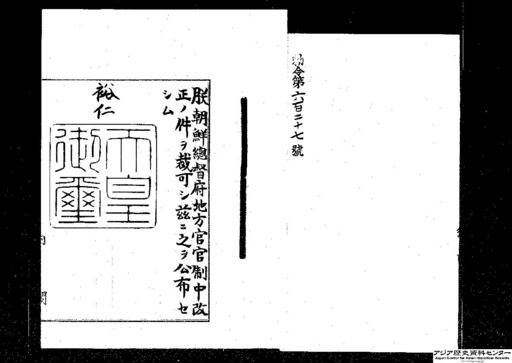 勅令第六百二十七號
朕朝鮮總督府地方官官制中改
正ノ件ヲ裁可シ茲ニ之ヲ公布セ
シム
裕仁
天皇
御璽
内閣
アジア歴史資料センター
Japan Center for Asian Historical Records